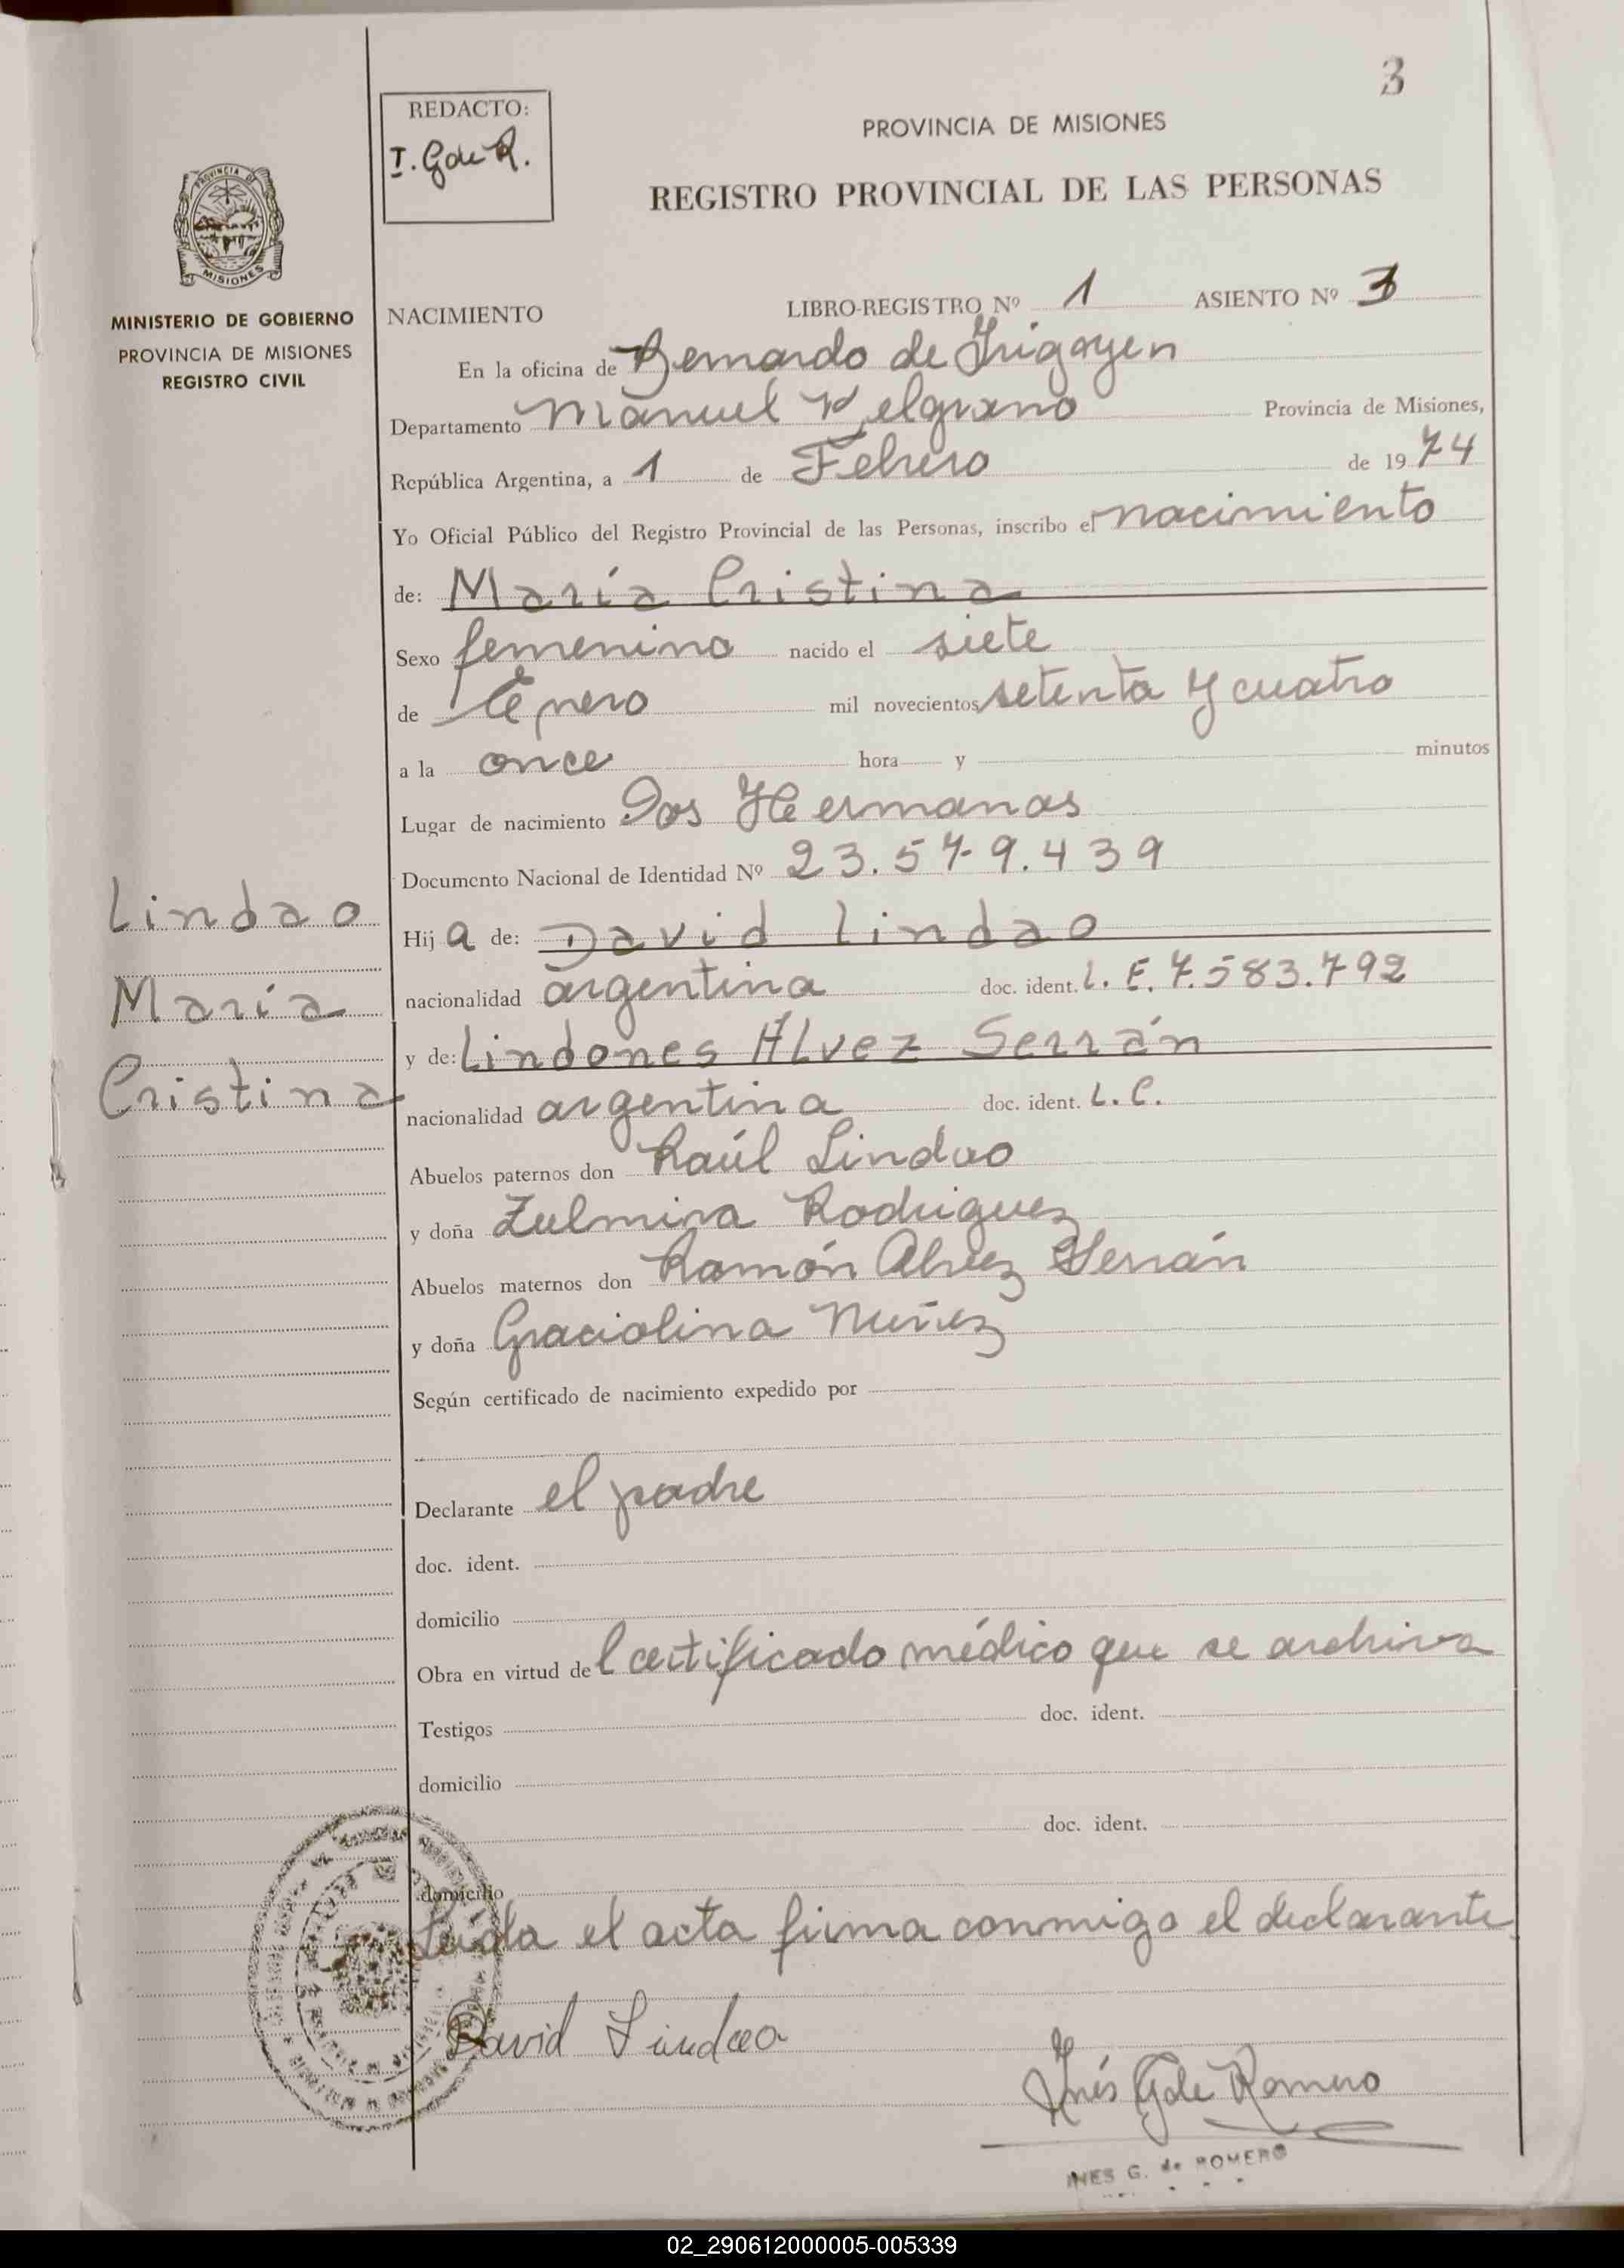 3
REDACTO:
I. G de R.
PROVINCIA DE MISIONES
REGISTRO PROVINCIAL DE LAS PERSONAS
MISIONES
MINISTERIO DE GOBIERNO
PROVINCIA DE MISIONES
REGISTRO CIVIL
NACIMIENTO LIBRO-REGISTRO Nº 1 ASIENTO Nº 3
En la oficina de Bernardo de Irigoyen
Departamento Manuel Belgrano Provincia de Misiones,
República Argentina, a 1 de Febrero de 1974
Yo Oficial Público del Registro Provincial de las Personas, inscribo el nacimiento
de: María Cristina
Sexo femenino nacido el siete
de Enero mil novecientos setenta y cuatro
a la once hora y minutos
Lugar de nacimiento Dos Hermanas
Documento Nacional de Identidad Nº 23.579.439
Lindao
María
Cristina
Hija de: David Lindao
nacionalidad argentina doc. ident. L. E. 7.583.792
y de: Lindones Alvez Serrán
nacionalidad argentina doc. ident. L. C.
Abuelos paternos don Raúl Lindao
y doña Zulmira Rodriguez
Abuelos maternos don Ramón Alvez Serrán
y doña Graciolina Nuñez
Según certificado de nacimiento expedido por
Declarante el padre
doc. ident.
domicilio
Obra en virtud del certificado médico que se archiva
Testigos doc. ident.
domicilio
doc. ident.
domicilio
Leída el acta firma conmigo el declarante
David Lindao
Inés G de Romero
INES G. de ROMERO
02_290612000005-005339